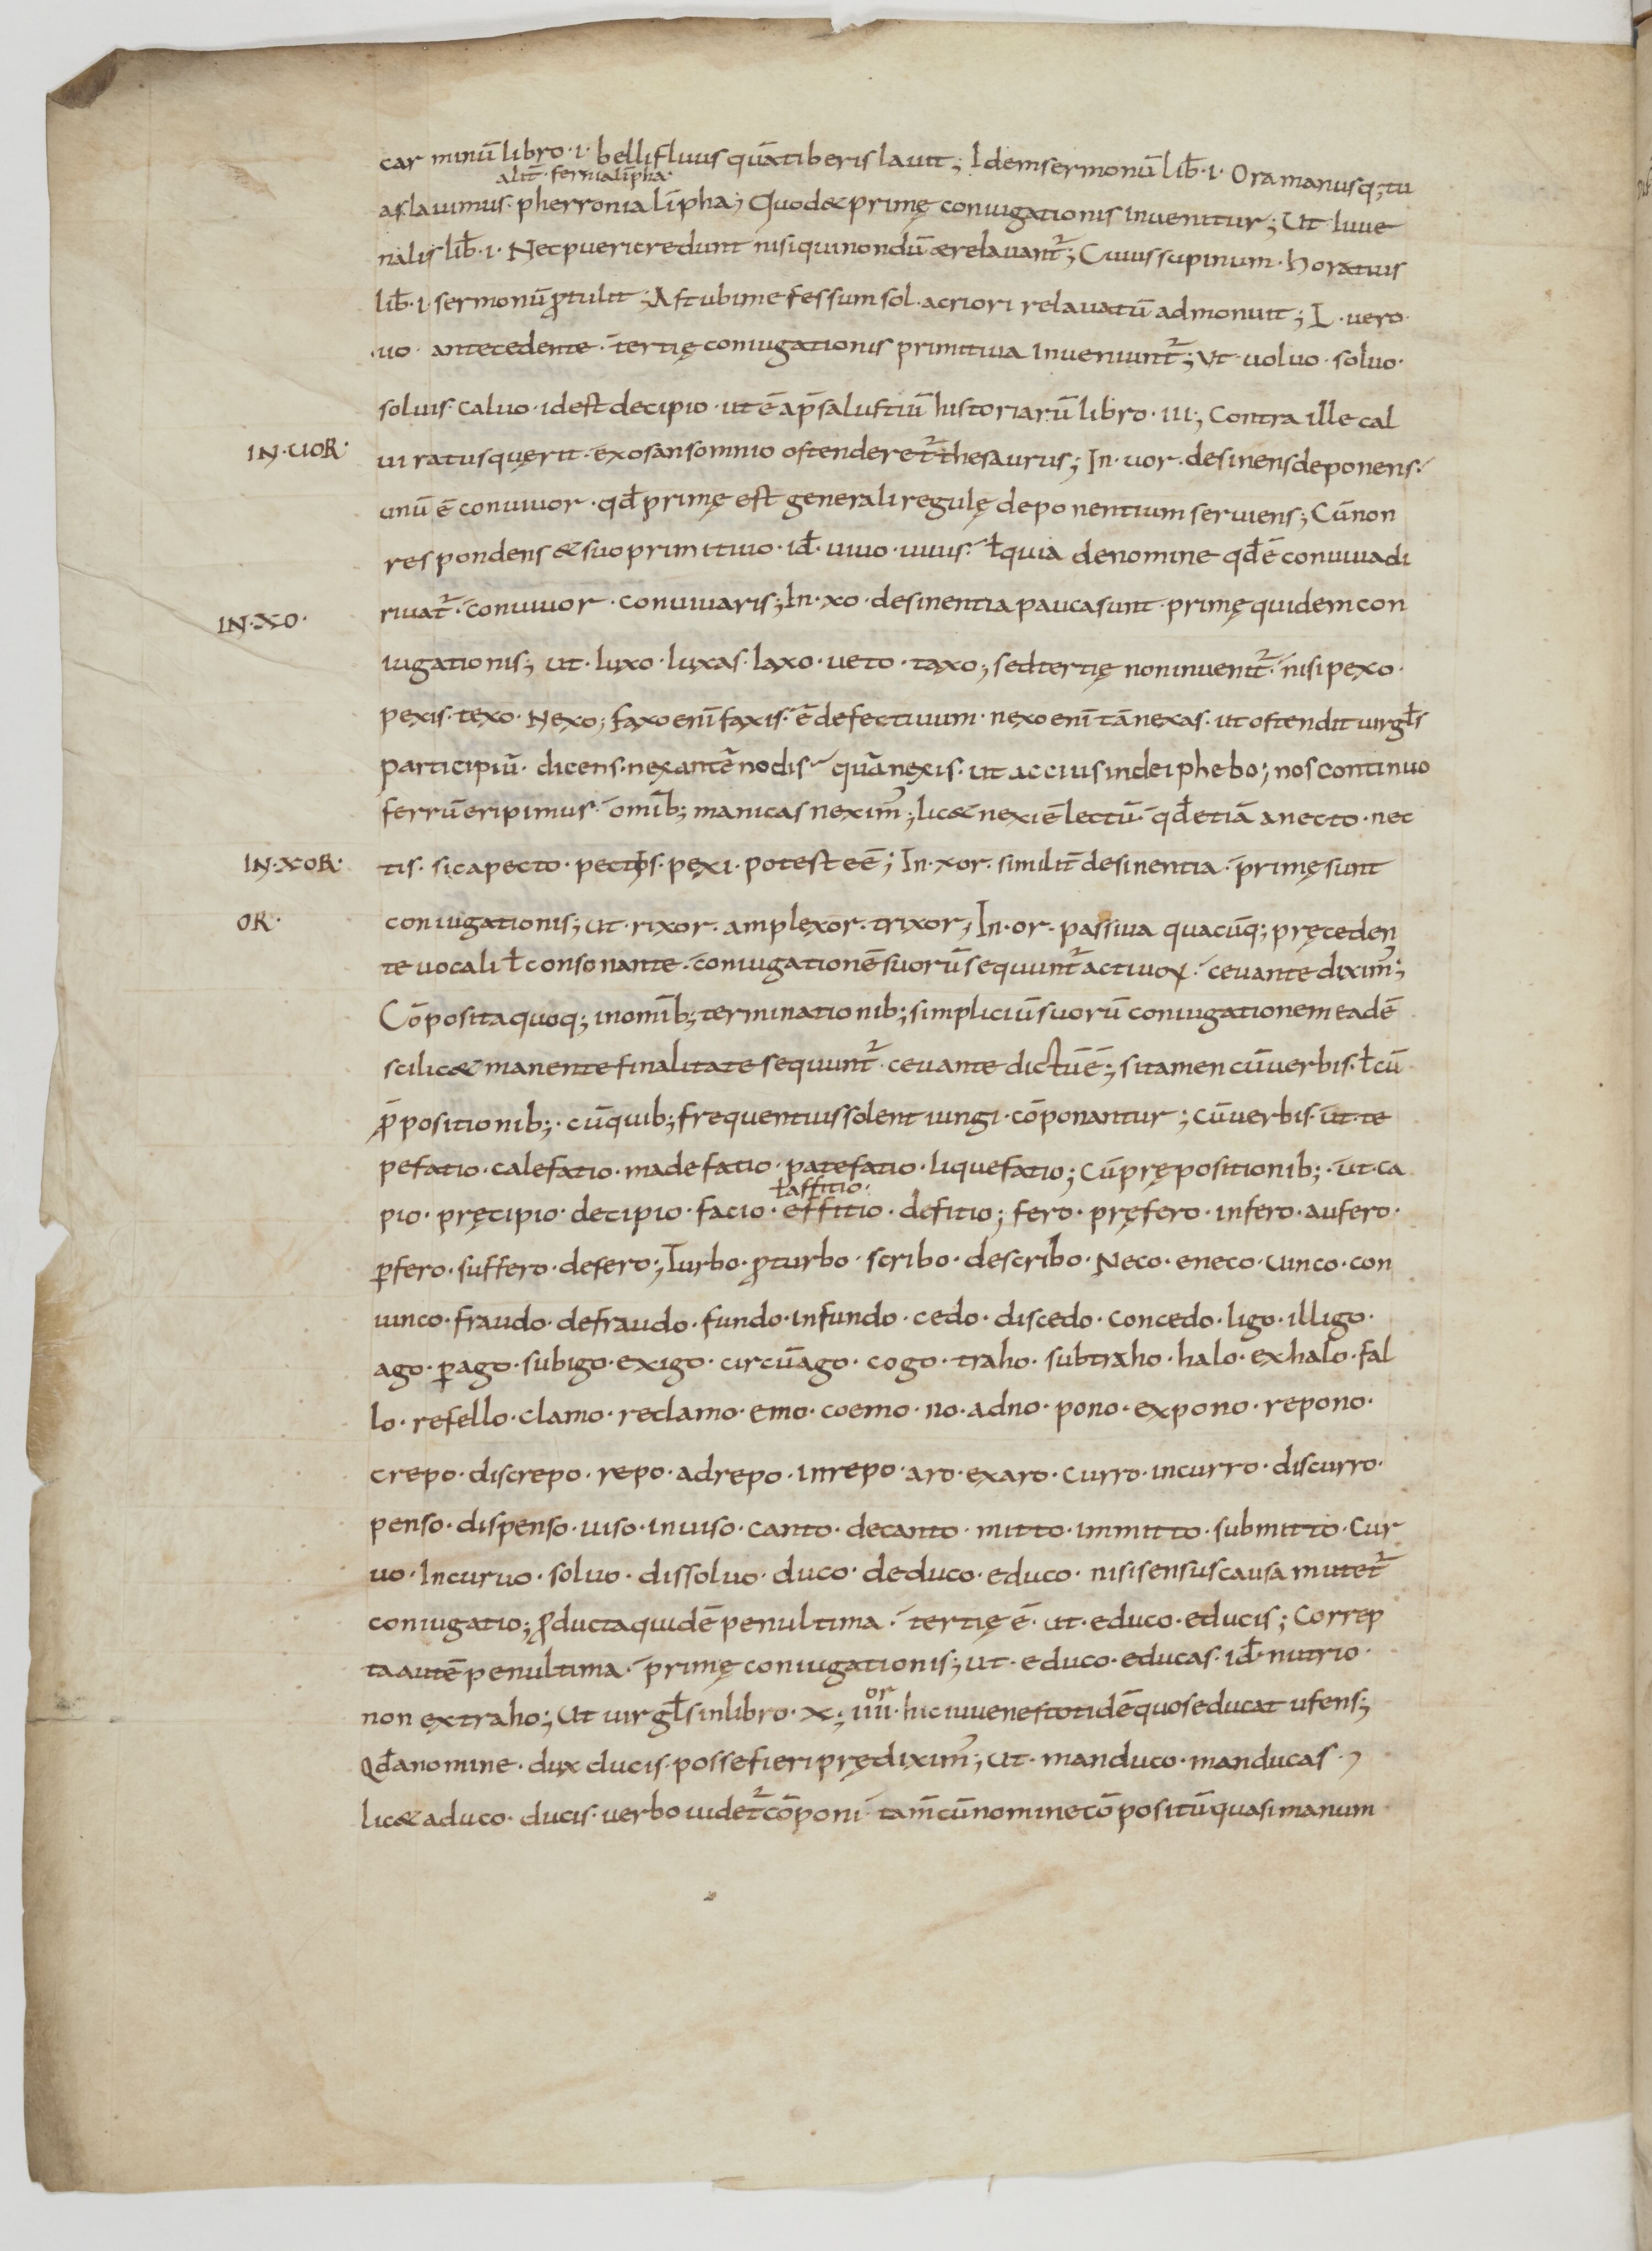 car minū libro · i · belli fluuius quā tiberis lauit ; Idem sermonū lib̄ · i · Ora manusq; tu
alit̄ · feronia līpha ·
as lauimus · pherronia līpha ; Quod & primę coniugationis inuenitur ; Ut iuue
nalis lib̄ · i · Nec pueri credunt nisi qui nondū ære lauant̄ ; Cuius supinum · horatius
lib̄ · i · sermonū ꝓtulit ; Ast ubi me fessum sol · acriori re lauatū admonuit ; L · uero ·
· uo · antecedente · tertię coniugationis primitiua inueniunt̄ ; Ut · uoluo · soluo ·
soluis · caluo · id est decipio · ut ē ap̄ salustiū historiarū libro · iii ; Contra ille cal
IN · UOR · ui ratus querit · exosan somnio ostenderet̄ thesaurus ; In · uor · desinens deponens ·
unū ē conuiuor · qd̄ primę est generali regulę deponentium seruiens ; Cū non
respondens & suo primitiuo · id̄ · uiuo · uiuis · ł quia de nomine qd̄ ē conuiua di
IN · XO · riuat̄ · conuiuor · conuiuaris ; In · xo · desinentia pauca sunt · primę quidem con
iugationis ; ut · luxo · luxas · laxo · ueto · taxo ; sed tertię non inuenit̄ · nisi pexo ·
pexis · texo · Nexo ; faxo enī faxis · ē defectiuum · nexo enī tā nexas · ut ostendit uirgłs
participiū · dicens · nexantē nodis · quā nexis · ut accius in deiphebo ; nos continuo
ferrū eripimus · omīb; manicas nexim᾽ ; lic& nexi ē lectū · qd̄ etiā a necto · nec
IN · XOR · tis · sic a pecto · pectis · pexi · potest eē ; In · xor · similit̄ desinentia · primę sunt
OR · coniugationis ; ut · rixor · amplexor · trixor ; In · or · passiua quacūq; pręceden
te uocali ł consonante · coniugationē suorū sequunt̄ actiuoꝝ · ceu ante dixim᾽ ;
Cōposita quoq; in omīb; terminationib; simpliciū suorū coniugationem eadē
scilic& manente finalitate sequunt̄ · ceu ante dictū ē ; si tamen cū uerbis · ł cū
p̄positionib; · cū quib; frequentius solent iungi · cōponantur ; Cū uerbis · ut · te
pefatio · calefatio · made fatio · patefatio · liquefatio ; Cū prępositionib; · ut · ca
ł affitio ·
pio · pręcipio · decipio · facio · effitio · defitio ; fero · pręfero · infero · aufero ·
ꝑfero · suffero · defero ; Turbo · ꝓturbo · scribo · describo · Neco · eneco · Uinco · con
uinco · fraudo · defraudo · fundo · infundo · cedo · discedo · concedo · ligo · illigo ·
ago · ꝑago · subigo · exigo · circūago · cogo · traho · subtraho · halo · exhalo · fal
lo · refello · clamo · reclamo · emo · coemo · no · adno · pono · expono · repono ·
crepo · discrepo · repo · adrepo · inrepo · aro · exaro · curro · incurro · discurro ·
penso · dispenso · uiso · inuiso · canto · decanto · mitto · immitto · submitto · Cur
uo · Incuruo · soluo · dissoluo · duco · deduco · educo · nisi sensus causa mutet̄
coniugatio ; ꝓducta quidē penultima · tertię ē · ut · educo · educis ; Correp
ta autē penultima · primę coniugationis ; ut · educo · educas · id̄ · nutrio ·
or
non extraho ; Ut uirgłs in libro · x ; iiii · hic iuuenes totidē quos educat ufens ;
Qd̄ a nomine · dux ducis · posse fieri prędixim᾽ ; ut · manduco · manducas ·
lic& a duco · ducis · uerbo uidet̄ cōponi · tam̄ cū nomine cōpositū quasi manum